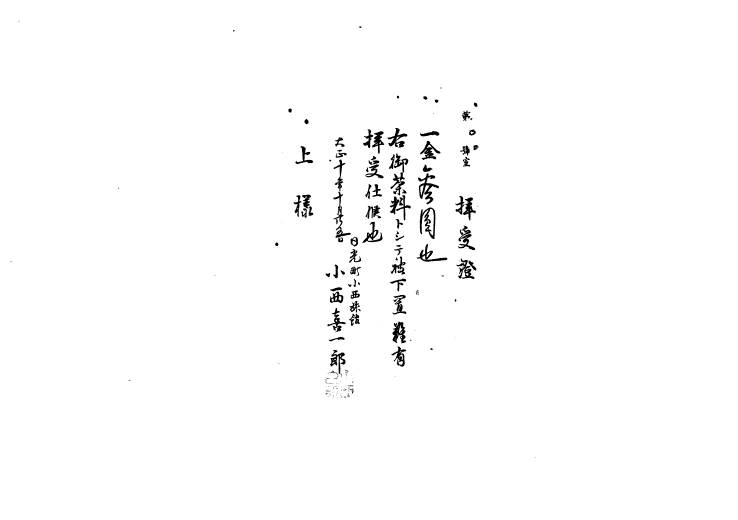 第 號室
拝受證
一金参圓也
右御茶料トシテ被下置難有
拝受仕候也
大正十年十月
日光町小西旅館
小西喜一郎
上様